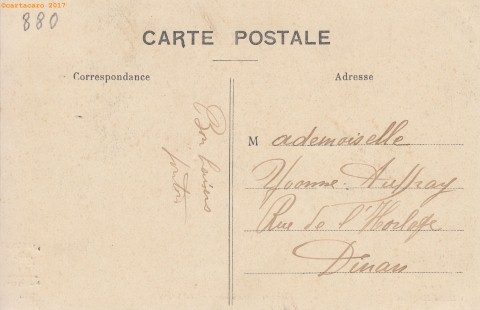 ©cartacaro 2017
880
CARTE POSTALE
Correspondance
Adresse
Bon baisers
Mademoiselle
Yvonne Auffray
Rue de l'Horloge
Dinan